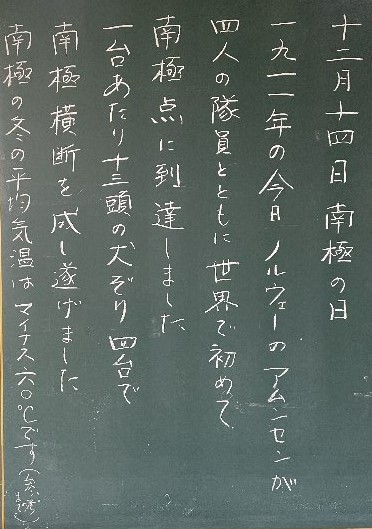 十二月十四日 南極の日
一九一一年の今日 ノルウェーのアムンセンが
四人の隊員とともに世界で初めて
南極点に到達しました
一台あたり十三頭の犬ぞり 四台で
南極横断を成し遂げました
南極の冬の平均気温は マイナス六〇℃です